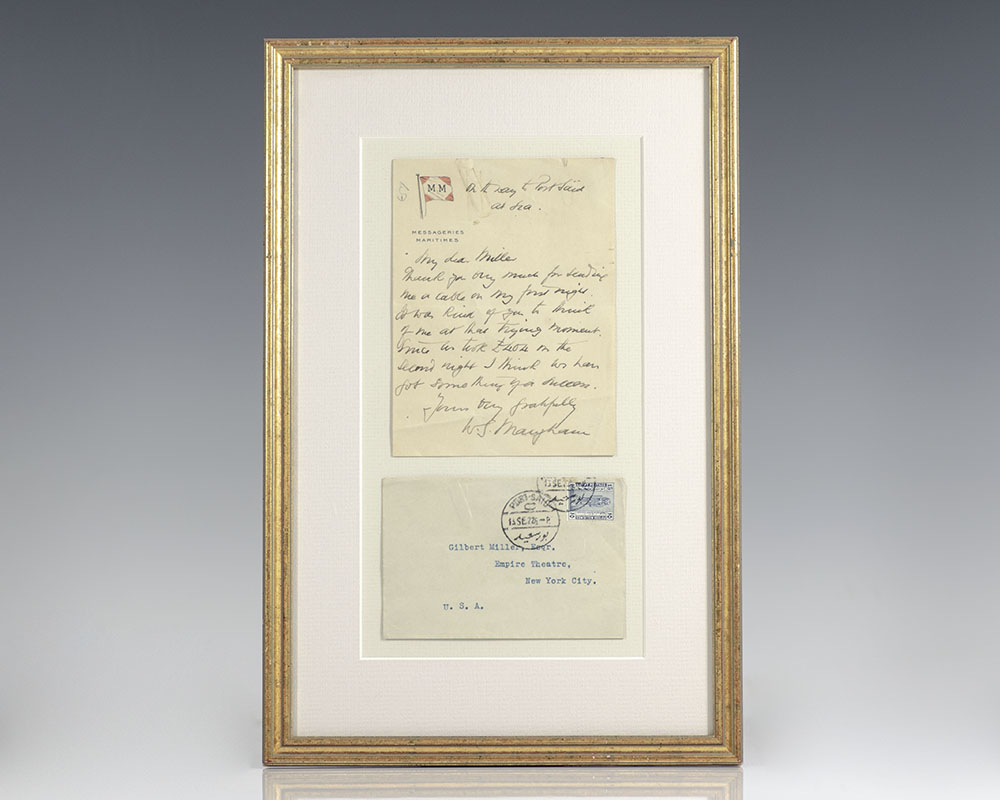 M M
On the way to Port Said
at sea.
MESSAGERIES
MARITIMES
My dear Miller
Thank you very much for sending
me a cable on my first night.
It was kind of you to think
of me at that trying moment.
Since we took £404 on the
second night I think we have
got something of a success.
Yours very gratefully
W. S. Maugham
13 SE 22
PORT-SAID
13 SE 22 -P
بور سعيد
Gilbert Miller, Esqr.
Empire Theatre,
New York City.
U. S. A.